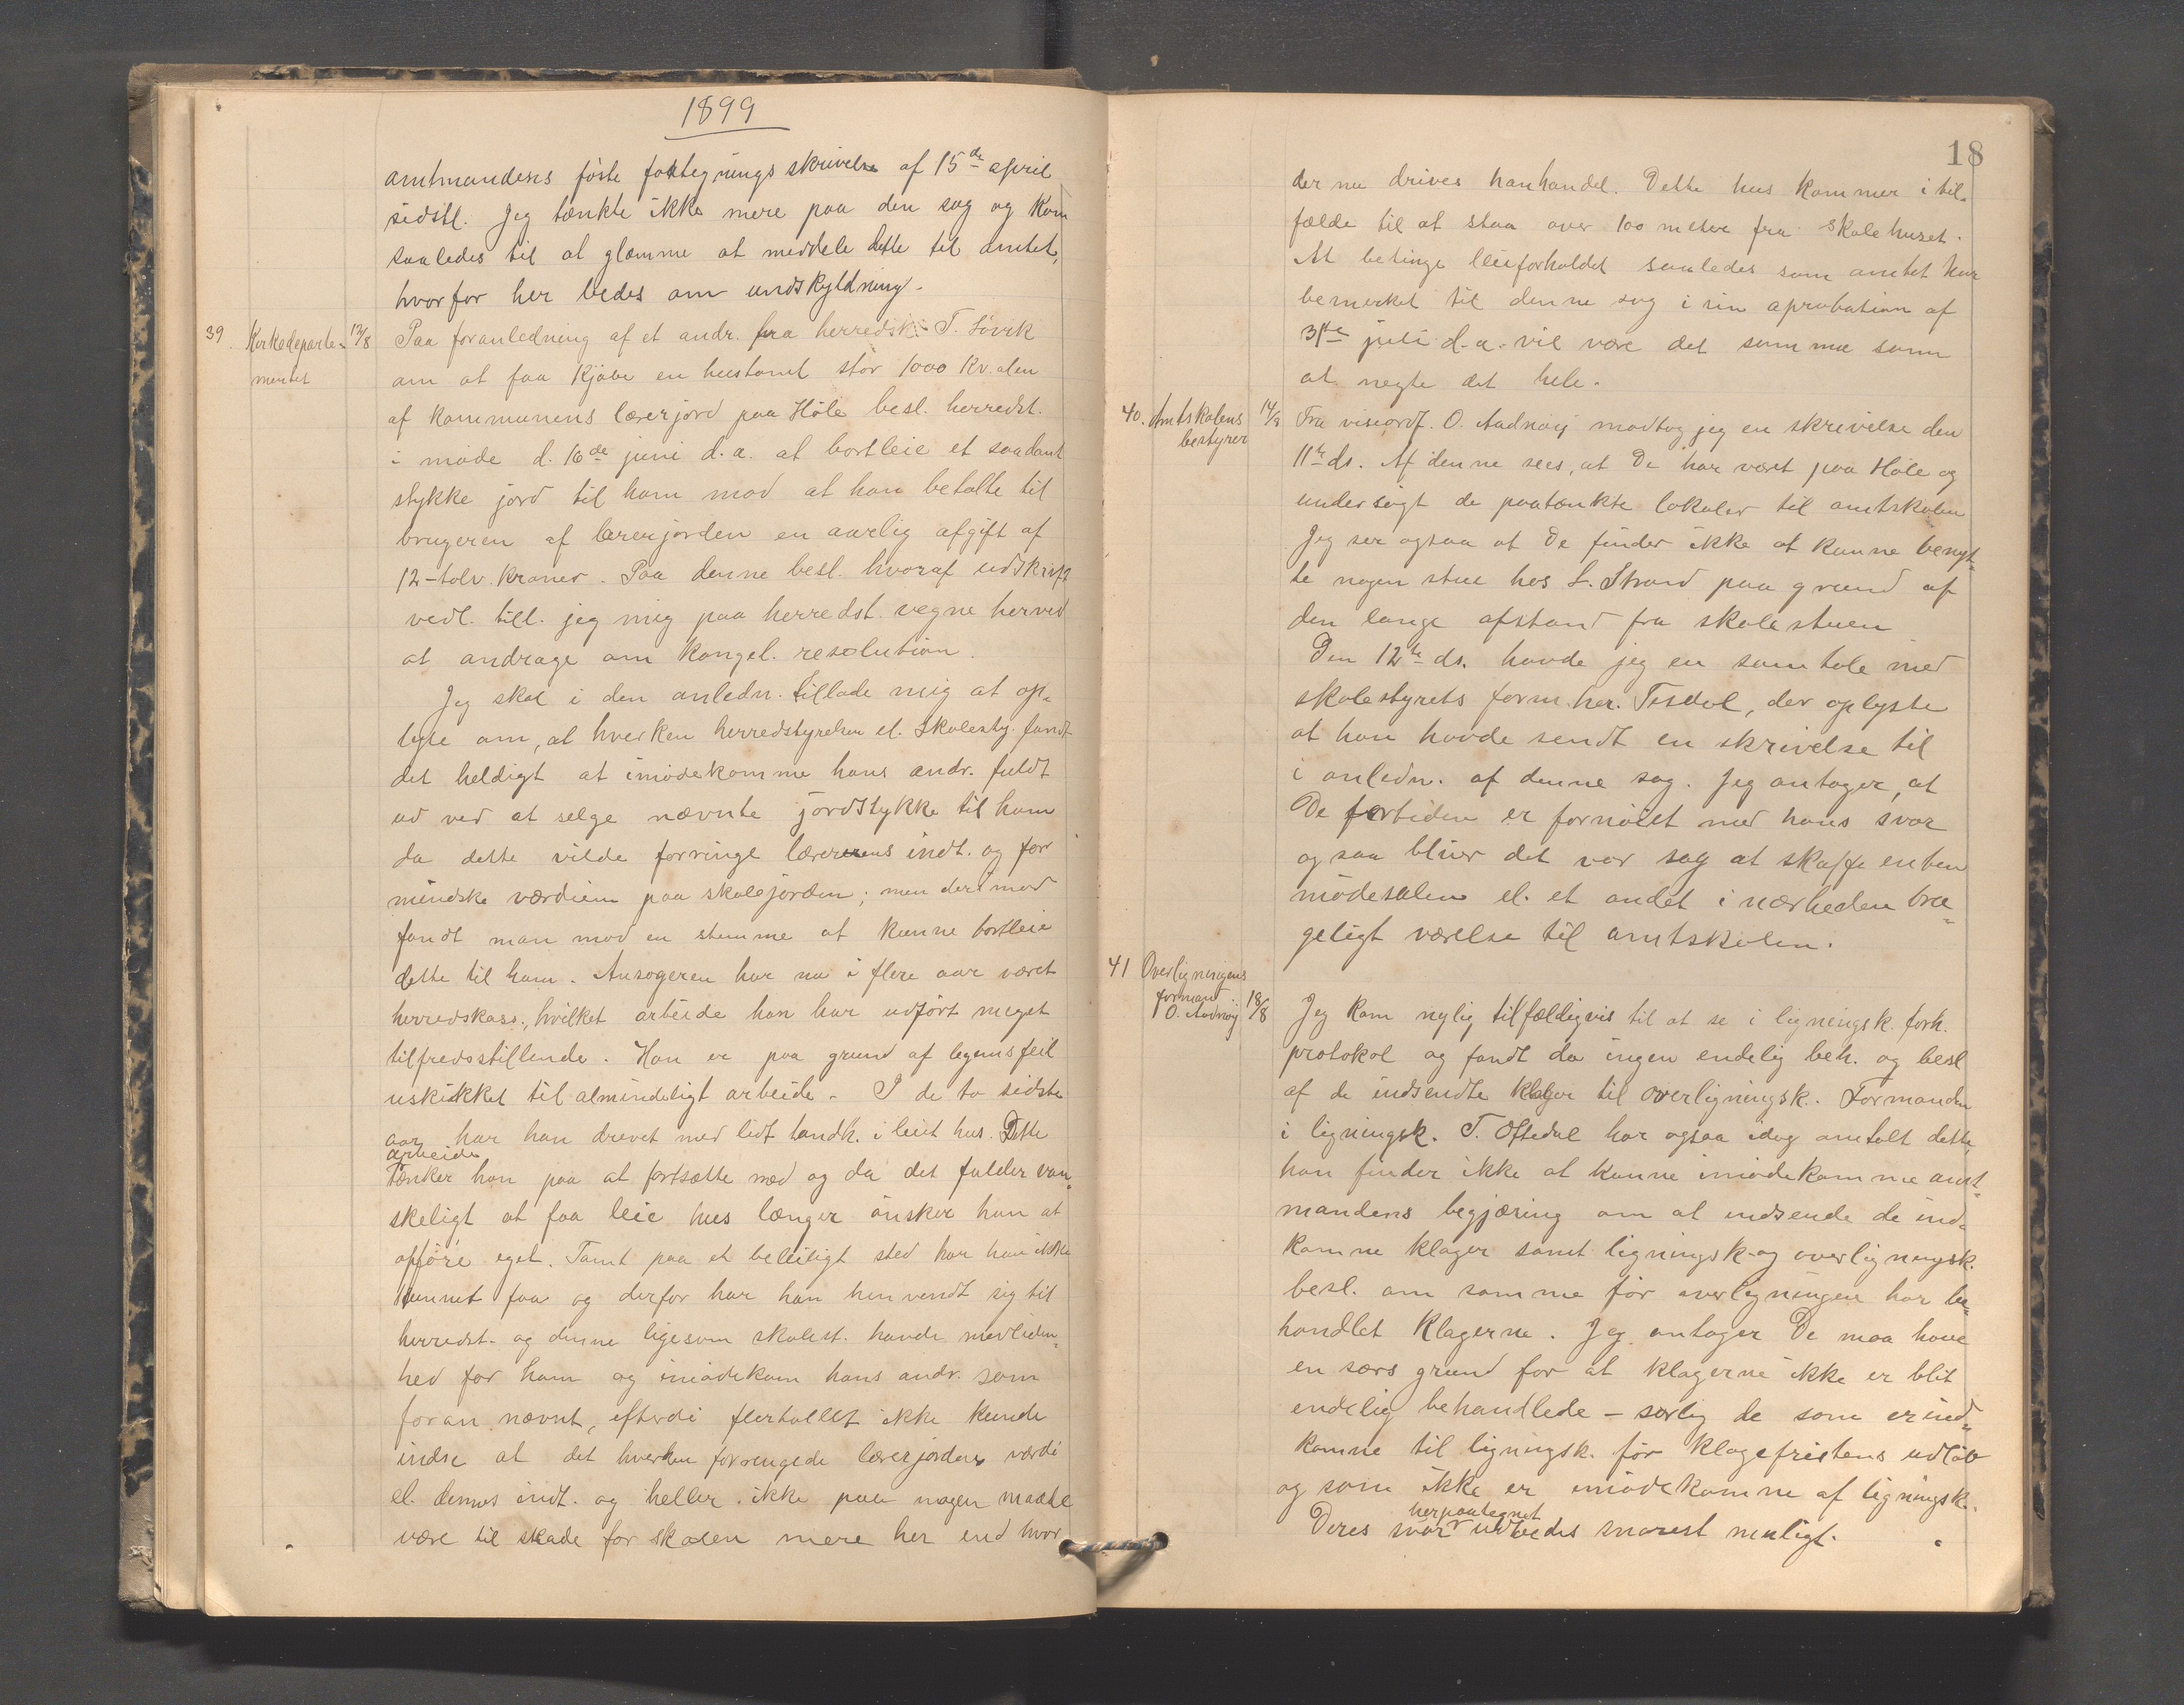 1899
amtmandens förste paategnings skrivelse af 15de april
sidstl. Jeg tænkte ikke mere paa den sag og kom
saaledes til at glemme at meddele dette til amtet,
hvorfor her bedes om undskyldning.
39. Kirkedeparte=
mentet
12/8
Paa foranledning af et andr. fra herredsk. T.
om at faa kjöbe en hustomt stor 1000 kv. alen
af kommunens lærerjord paa Höle besl. herredst.
i möde d. 16de juni d.a. at bortleie et saadant
stykke jord til ham mod at han betalte til
brugeren af lærerjorden en aarlig afgift af
12-tolv kroner. Paa denne besl. hvoraf udskrift
vedl. till. jeg mig paa herredst. vegne herved
at andrage om kongel. resolution.
Jeg skal i den anledn. tillade mig at op=
lyse om, at hverken herredstyrelsen el. skolesty. fandt
det heldigt at imödekomme hans andr. fuldt
ud ved at selge nævnte jordstykke til ham
da dette vilde forringe lærerens indt. og for
mindske værdien paa skolejorden; men derimod
fandt man mod en stemme at kunne bortleie
dette til ham. Ansögeren har nu i flere aar været
herredskass., hvilket arbeide han har udfört meget
tilfredsstillende. Han er paa grund af legemsfeil
uskikket til almindeligt arbeide. I de to sidste
aar har han drevet med lidt landh. i leiet hus. Dette
arbeide
tænker han paa at fortsætte med og da det falder van=
skeligt at faa leie hus længer önsker han at
opföre eget. Tomt paa et beleiligt sted har han ikke
kunnet faa og derfor har han henvendt sig til
herredst. og denne ligesom skolest. havde medliden=
hed for ham og imödekom hans andr. som
foran nævnt, efterdi flertallet ikke kunde
indse at det hverken forringede lærerjordens værdi
el. dennes indt. og heller ikke paa nogen maade
være til skade for skolen mere her end hvor
18
der nu drives hanhandel. Dette hus kommer i til=
fælde til at staa over 100 meter fra skolehuset.
At betinge leieforholdet saaledes som amtet har
bemerket til denne sag i sin aprobation af
31te juli d.a. vil være det samme som
at negte det hele.
40. Amtskolens
bestyrer
14/8
Fra viseordf. O. Aadnöy modtog jeg en skrivelse den
11te ds. Af denne sees, at De har været paa Höle og
undersögt de paatænkte lokaler til amtskolen
Jeg ser ogsaa at De finder ikke at kunne benyt=
te nogen stue hos L. Strand paa grund af
den lange afstand fra skolestuen
Den 12te ds. havde jeg en samtale med
skolestyrets form. her. Tesdal, der oplyste
at han havde sendt en skrivelse til
i anledn. af denne sag. Jeg antager, at
De fortiden er fornöiet med hans svar
og saa bliver det vor sag at skaffe enten
mödesalen el. et andet i nærheden bru=
geligt værelse til amtskolen.
41 Overligningens
formand
O. Aadnöy
18/8
Jeg kom nylig tilfældigvis til at se i ligningsk. forh.
protokol og fandt da ingen endelig beh. og besl
af de indsendte klager til overligningsk. Formanden
i ligningsk. T. Oftedal har ogsaa idag omtalt dette,
han finder ikke at kunne imödekomme amt=
mandens begjæring om at indsende de ind=
komne klager samt ligningsk. og overligningsk.
besl. om samme för overligningen har be=
handlet klagerne. Jeg antager De maa have
en særs grund for at klagerne ikke er blit
endelig behandlede - særlig de som er ind=
komne til ligningsk. för klagefristens udlöb
og som ikke er imödekomne af ligningsk.
herpaategnet
Deres svar udbedes snarest muligt.